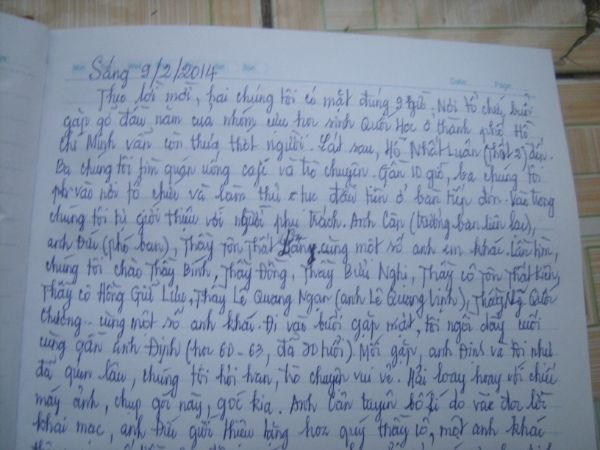 Sáng 9/2/2014
Date: Page:
Theo lời mời, hai chúng tôi có mặt đúng 9 giờ. Nơi tổ chức buổi
gặp gỡ đầu năm của nhóm cựu học sinh Quốc Học ở thành phố Hồ
Chí Minh vẫn còn thưa thớt người. Lát sau, Hồ Nhất Luân (Phật 2) đến.
Ba chúng tôi tìm quán uống café và trò chuyện. Gần 10 giờ, ba chúng tôi
vào nơi tổ chức và làm thủ tục đầu tiên ở ban tiếp đón. Vào trong
chúng tôi tự giới thiệu với người phụ trách. Anh Cận (trưởng ban liên lạc),
anh Đức (phó ban), Thầy Tôn Thất cùng một số anh em khác. Lần tìm,
chúng tôi chào Thầy Bính, Thầy Đồng, Thầy Bửu Nghi, Thầy cô Tôn Thất
Thầy cô Hồng Giũ Lưu, Thầy Lê Quang Ngạn (anh Lê Quang Vịnh), Thầy Ngô Quốc
Chương.. cùng một số anh khác. Đi vào buổi gặp mặt, tôi ngồi dãy cuối
cùng gần anh Định (học 60-63, đã 70 tuổi). Mới gặp, anh Định và tôi như
đã quen lâu, chúng tôi hỏi han, trò chuyện vui vẻ. Hải loay hoay với chiếc
máy ảnh, chụp góc này, góc kia. Anh Cận tuyên bố lí do vào lời
khai mạc, anh Đức giới thiệu bằng hoa quý thầy cô, một anh khác